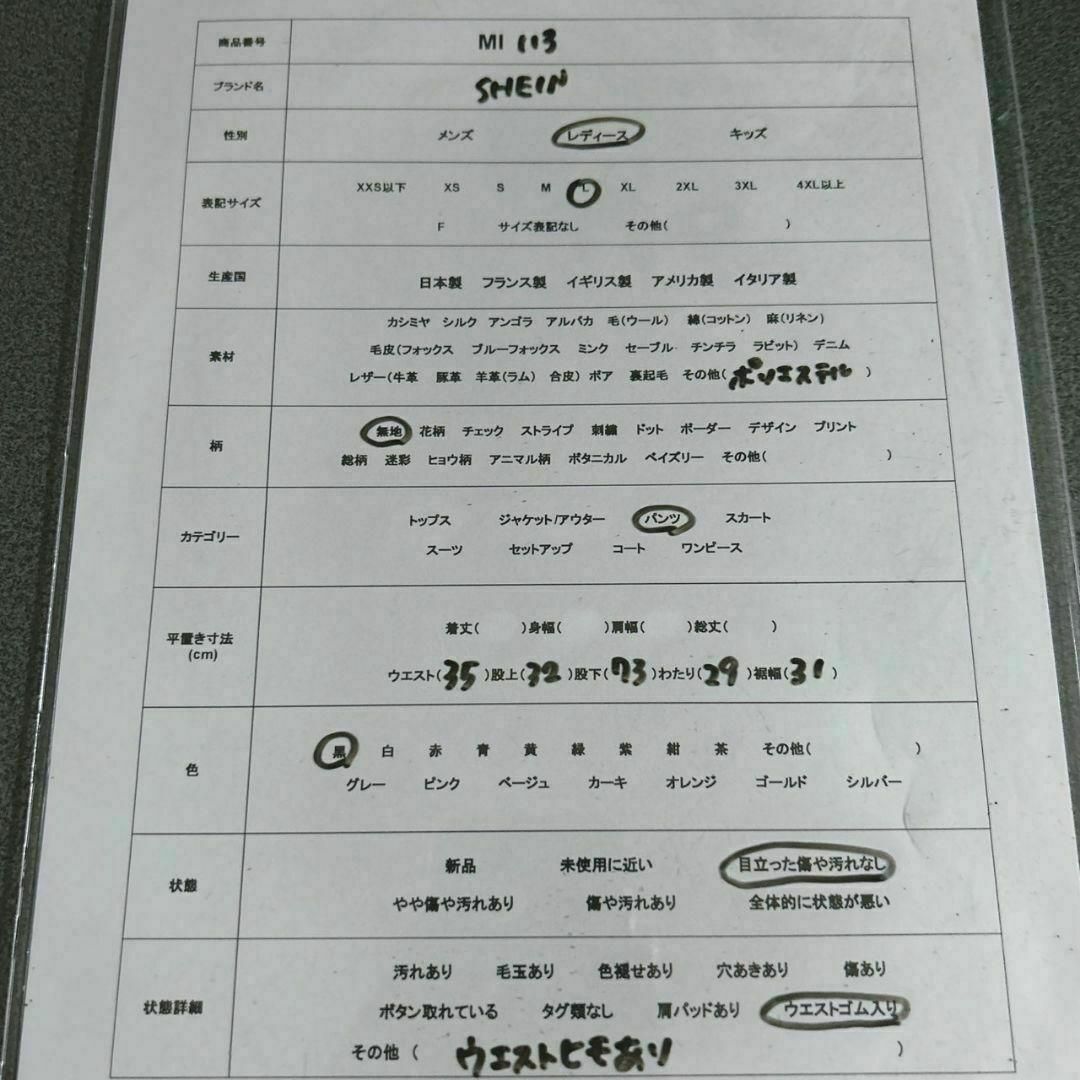 商品番号 MI 113
ブランド名 SHEIN
性別 メンズ レディース キッズ
表記サイズ XXS以下 XS S M L XL 2XL 3XL 4XL以上
F サイズ表記なし その他( )
生産国 日本製 フランス製 イギリス製 アメリカ製 イタリア製
素材 カシミヤ シルク アンゴラ アルパカ 毛(ウール) 綿(コットン) 麻(リネン)
毛皮(フォックス ブルーフォックス ミンク セーブル チンチラ ラビット) デニム
レザー(牛革 豚革 羊革(ラム) 合皮) ボア 裏起毛 その他(ポリエステル)
柄 無地 花柄 チェック ストライプ 刺繍 ドット ボーダー デザイン プリント
総柄 迷彩 ヒョウ柄 アニマル柄 ボタニカル ペイズリー その他( )
カテゴリー トップス ジャケット/アウター パンツ スカート
スーツ セットアップ コート ワンピース
平置き寸法 (cm) 着丈( )身幅( )肩幅( )総丈( )
ウエスト(35)股上(32)股下(73)わたり(29)裾幅(31)
色 黒 白 赤 青 黄 緑 紫 紺 茶 その他( )
グレー ピンク ベージュ カーキ オレンジ ゴールド シルバー
状態 新品 未使用に近い 目立った傷や汚れなし
やや傷や汚れあり 傷や汚れあり 全体的に状態が悪い
状態詳細 汚れあり 毛玉あり 色褪せあり 穴あきあり 傷あり
ボタン取れている タグ類なし 肩パッドあり ウエストゴム入り
その他 ( ウエストヒモあり )